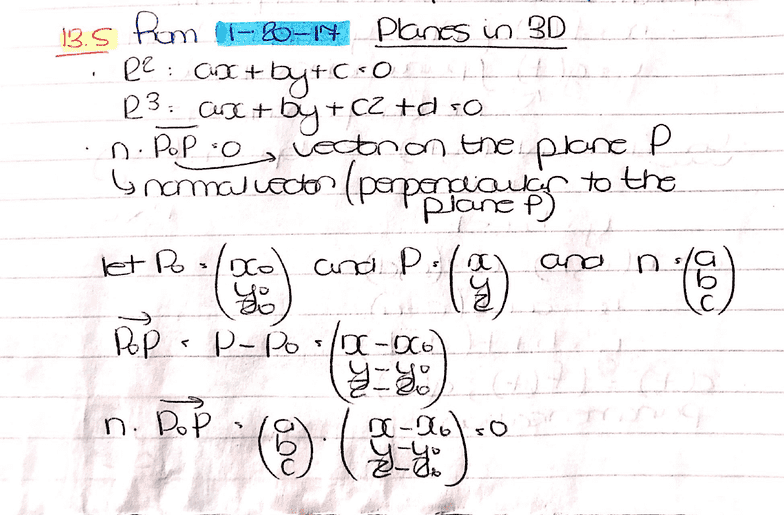 13.5 from 1-20-17 Planes in 3D
. R2: ax+by+c=0
R3: ax+by+cz+d=0
. n. P₀P =0 → vector on the plane P
↳ normal vector (perpendicular to the
plane P)
let P₀ = (x₀ y₀ z₀) and P = (x y z) and n = (a b c)
P₀P = P - P₀ = (x-x₀ y-y₀ z-z₀)
n. P₀P = (a b c) . (x-x₀ y-y₀ z-z₀) =0